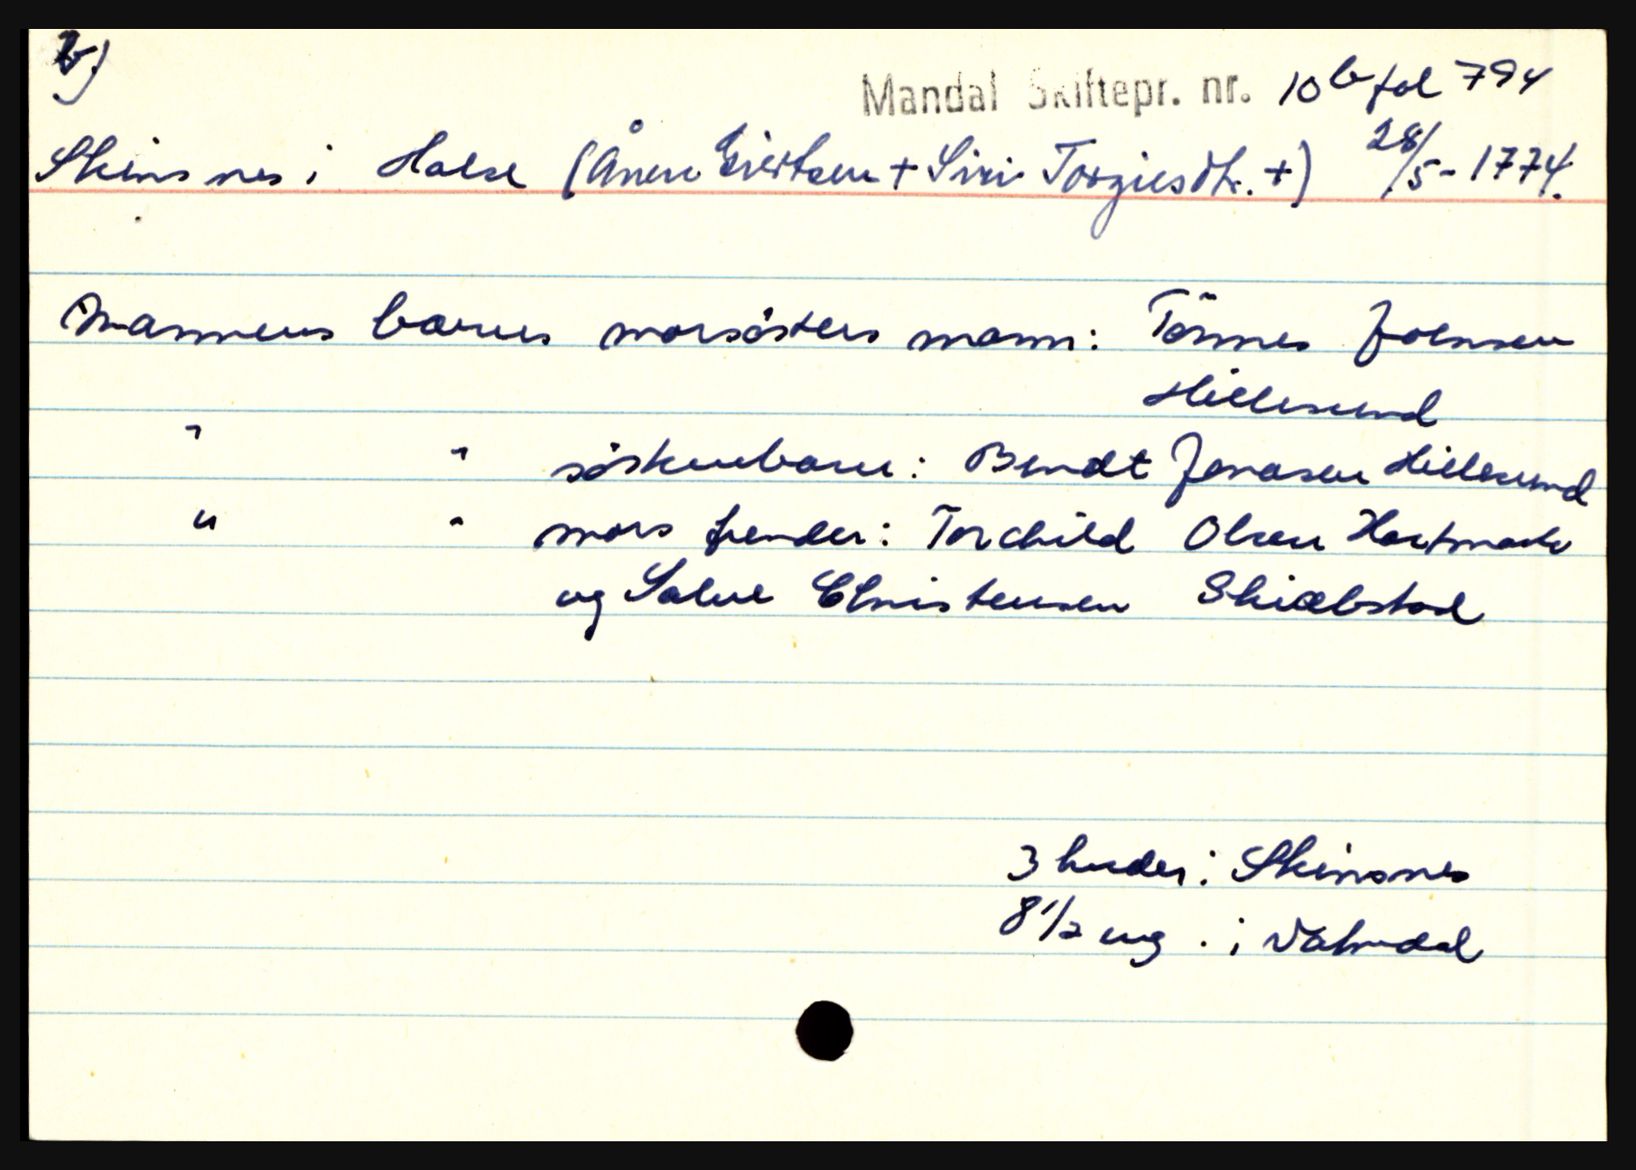 b)
Mandal Skiftepr. nr. 10b fol 794
Skinsnes i Halse (Ånen Giertsen + Siri Torgiesdtr. +) 28/5-1774.
Mannens barns morsösters mann: Tönnes Joensen
Hillesund
" " söskenbarn: Bendt Jonasen Hillesund
" " mors frender: Torchild Olsen Hartmark
og Salve Christensen Skiæbstad
3 huder i Skinsnes
8 1/2 eng . i